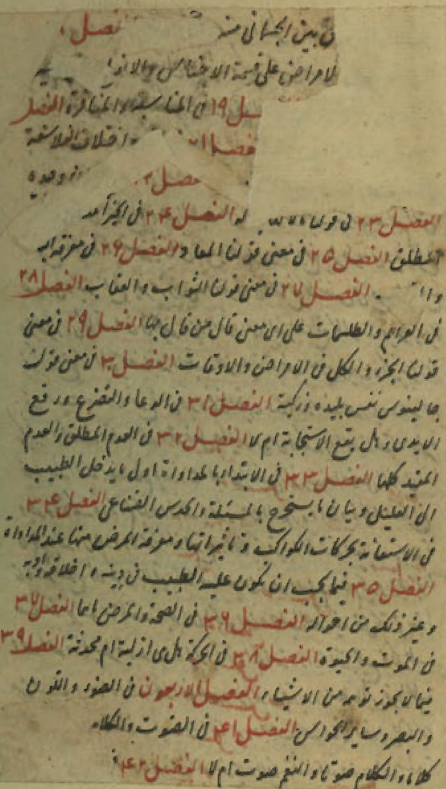 بين الجسماني منه فصل
الامراض على قسمة الاجناس والانوا
فصل ١٩ في المناسبة والمنافرة الفصل
فصل ٢١ اختلاف الفلاسفة
فصل
الفصل ٢٣ في قولنا له الفصل ٢٤ في الخير
المطلق الفصل ٢٥ في معنى قولنا المعاد الفصل ٢٦ في معرفة
الفصل ٢٧ في معنى قولنا الثواب والعقاب الفصل ٢٨
في العزايم والطلسمات على اى معنى قال من قال بها الفصل ٢٩ في معنى
قولنا الجزء والكل في الامراض والاوقات الفصل ٣٠ في معنى قول
جالينوس نفس بليدة وزكية الفصل ٣١ في الدعا والتضرع ورفع
الايدى وهل يقع الاستجابة ام لا الفصل ٣٢ في العدم المطلق والعدم
المقيد كلها الفصل ٣٣ في الابتداء بالمداواة اول ما يدخل الطبيب
الى العليل وبيان ما يستخرج بالمسئلة والحدس الصناعي الفصل ٣٤
في الاستعانة بحركات الكواكب وتاثيراتها ومعرفة المرض منها عند المداواة
الفصل ٣٥ فيما يجب ان يكون عليه الطبيب في دينه واخلاقه وادبه
وغير ذلك من احواله الفصل ٣٦ في الصحة والمرض ما هما الفصل ٣٧
في الموت والحيوة الفصل ٣٨ في الحركة هل هي ازلية ام محدثة الفصل ٣٩
فيما لا يجوز توهمه من الاشياء الفصل الاربعون في الضوء واللون
والبصر وساير الحواس الفصل ٤١ في الصوت والكلام
كلاما والكلام صوتا والنغم صوت ام لا الفصل ٤٢